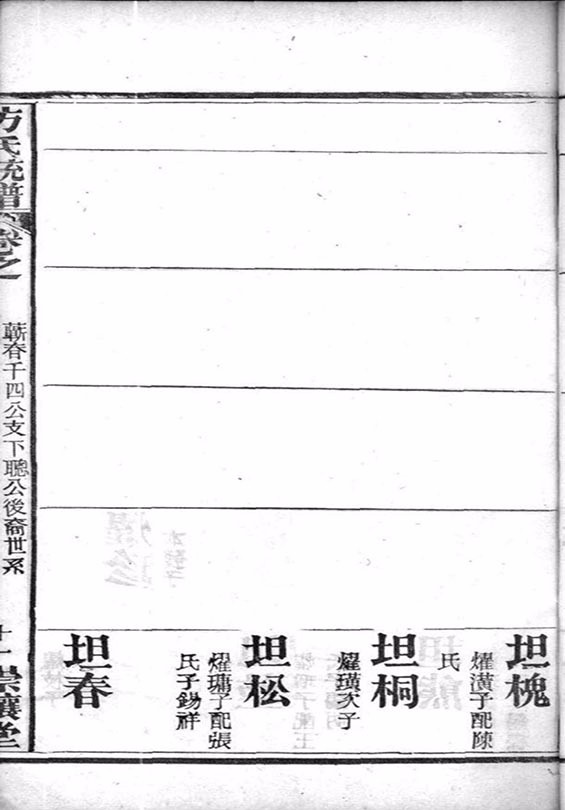 坦槐
燿潢子配陳
氏
坦桐
燿璜次子
坦松
燿璛子配張
氏子錫祥
坦春
方氏統譜
卷之一
蘄春千四公支下聰公後裔世系